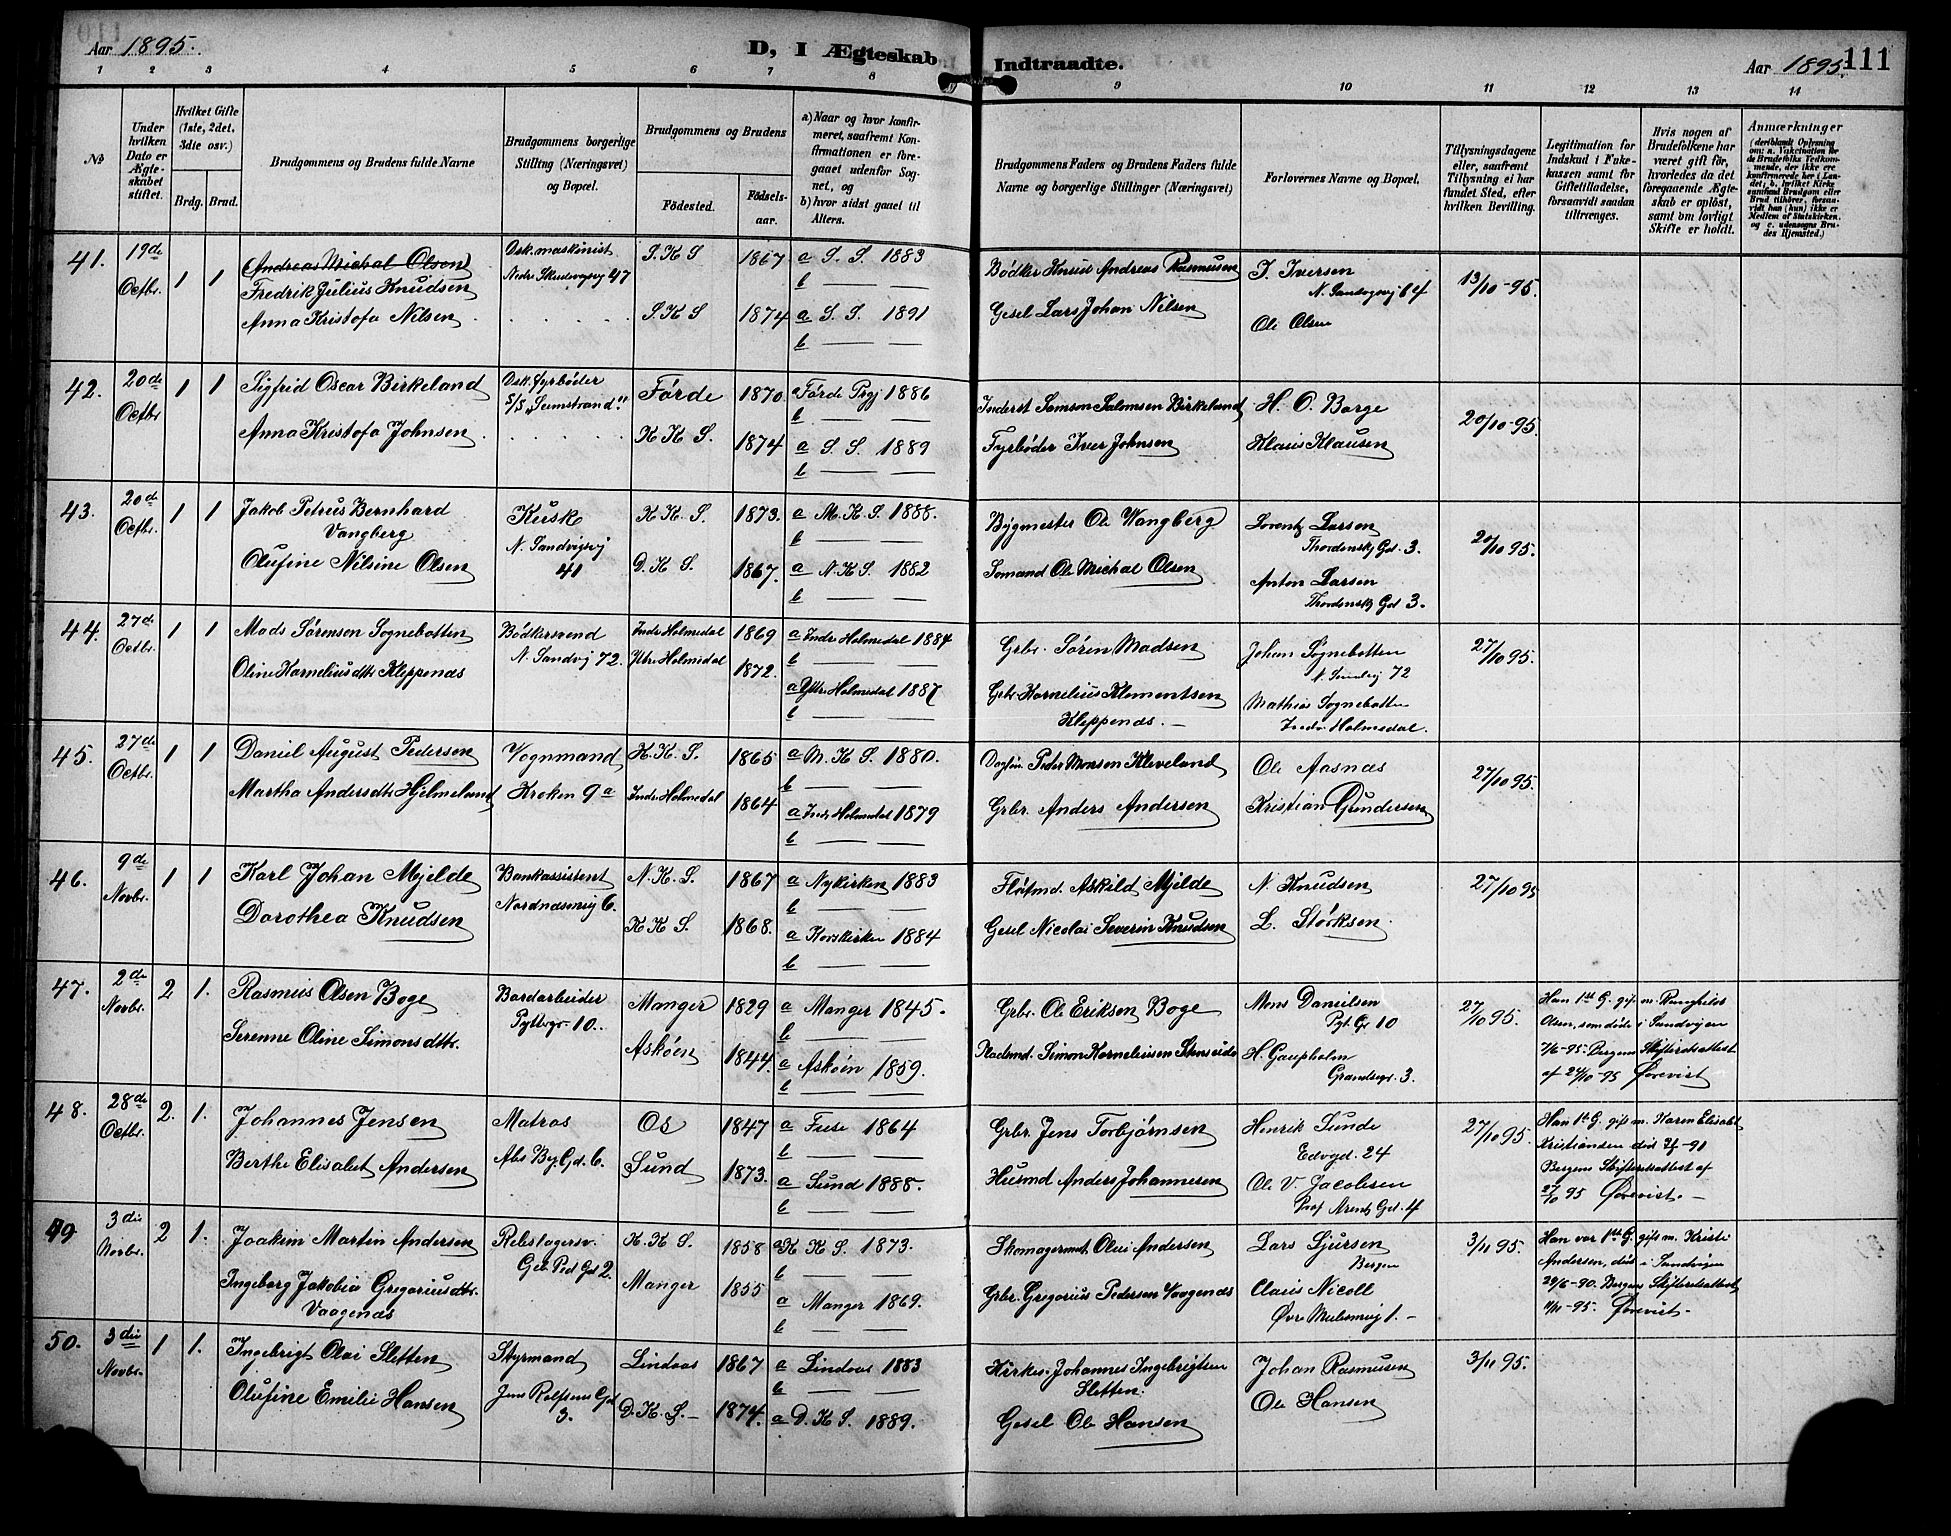 Aar 1895.
D, I Ægteskab Indtraadte.
Aar 1895.
111
1 2 3 4 5 6 7 8 9 10 11 12 13 14
№
Under hvilken Dato er Ægteskabet stiftet.
Hvilket Gifte (1ste, 2det, 3die osv.)
Brdg. Brud.
Brudgommens og Brudens fulde Navne
Brudgommens borgerlige Stilling (Næringsvei) og Bopæl.
Brudgommens og Brudens
Födested.
Födselsaar.
a) Naar og hvor konfirmeret, saafremt Konfirmationen er foregaaet udenfor Sognet, og
b) hvor sidst gaaet til Alters.
Brudgommens Faders og Brudens Faders fulde Navne og borgerlige Stillinger (Næringsvei)
Forlovernes Navne og Bopæl.
Tillysningsdagene eller, saafremt Tillysning ei har fundet Sted, efter hvilken Bevilling.
Legitimation for Indskud i Enkekassen samt for Giftetilladelse, forsaavidt saadan tiltrænges.
Hvis nogen af Brudefolkene har været gift för, hvorledes da det foregaaende Ægteskab er oplöst, samt om lovligt Skifte er holdt.
Anmærkninger
41. 19de Octbr. 1 1
Andreas Michal Olsen
Fredrik Julius Knudsen
Anna Kristofa Nilsen
Dsk. maskinist
Nedre Skudevigsvj 47
S. K S 1867 a S. S. 1883
b — —
S. K S 1874 a S. S. 1891
b — —
Bödker Knud Andreas Rasmusen
Gesel Lars Johan Nilsen
I. Iversen
N. Sandvgsvj 64
Ole Olsen
13/10-95.
42. 20de Octbr. 1 1
Sigfrid Oscar Birkeland
Anna Kristofa Johnsen
Dsk. Fyrböder
S/S "Lumstrand".
Förde 1870 a Förde Prgj 1886
b — —
K K S. 1874 a S. S. 1889
b — —
Inderst Samson Salomsen Birkeland
Fyrböder Iver Johnsen
H. O. Borge
Klaus Klausen
20/10-95.
43. 20de Octbr. 1 1
Jakob Petrus Bernhard Vangberg
Olufine Nilsine Olsen
Kusk
N. Sandvigsvj 41
K K. S. 1873. a M. K S. 1888.
b — —
D. K S. 1867. a N. K S. 1882
b — —
Bygmester Ole Wangberg
Sömand Ole Michal Olsen
Lorentz Larsen
Thordenskj Gd. 3.
Anton Larsen
Thordenskj Gd 3.
20/10 95.
44. 27de Octbr. 1 1
Mads Sörensen Sognebotten
Oline Kornelius dtr. Kleppenæs
Bödkersvend
N. Sandvj 72.
Indre Holmedal 1869 a Indre Holmedal 1884
b — —
Ytre Holmedal 1872. a Ytre Holmedal 1887
b — —
Grbr. Sören Madsen
Gbr. Kornelius Klementsen Kleppenæs. —
Johan Sognebotten
N. Sandvj 72
Mathias Sognebotten
Indre Holmedal.
27/10 95.
45. 27de Octbr. 1 1
Daniel August Pedersen
Martha Andersdtr Hjelmeland
Vognmand
Kroken 9a
K. K. S. 1865 a M. K S. 1880.
b — —
Indre Holmedal 1864 a Indre Holmedal 1879
b — —
Peder Monsen Kleveland
Grbr. Anders Andersen
Ole Aasnæs
Kristian Gundersen
27/10 95.
46. 9de Novbr. 1 1
Karl Johan Mjelde
Dorothea Knudsen
Bankassistent
Nordnæsveij 6.
N. K. S. 1867 a Nykirken 1883
b — —
K K S. 1868. a Korskirken 1884
b — —
Flötmd. Askild Mjelde
Gesel Nicolai Severin Knudsen
N. Knudsen
L. Störksen.
27/10 95
47. 2de Novbr. 2 1.
Rasmus Olsen Boge
Serenne Oline Simonsdtr.
Bordarbeider
Pyttergr. 10..
Manger 1829 a Manger 1845.
b — —
Asköen 1844. a Asköen 1859.
b — —
Grbr. Ole Eriksen Boge
Pladsmd. Simon Korneliusen Stenseide
Mons Danielsen
Pyt. Gr 10
H. Gaupholm
Grandsegr. 3.
27/10 95.
Han 1ste G. gift m. Ranghild
Olsen, som döde i Sandvigen
7/6-95. Bergens Skifteretsattest
af 24/10-95 Forevist
48. 28de Octbr. 2. 1.
Johannes Jensen
Berthe Elisabet Andersen
Matros
Abs By. Gd. 6.
Os 1847 a Fuse 1864
b — —
Sund 1873. a Sund 1888.
b — —
Grbr. Jens Torbjörnsen
Husmd Anders Johannesen
Henrik Sunde
Edvgd. 24
Ole V. Jacobsen
Prof Arentz Gd. 4
27/10 95.
Han 1ste G. gift m. Karen Elisabet
Kristiansen död
Bergens Skifteretsattest af
27/10 95 Forevist. —
49 3die Novbr. 2 1.
Joakim Martin Andersen
Ingeborg Jakobia Gregoriusdtr. Vaagenæs
Rebslagersv.
Geb. Ped Gd 2.
K. K S. 1858 a K K S. 1873.
b — —
Manger 1855 a Manger 1869.
b — —
Skomagermst. Olai Andersen
Grbr. Gregorius Pedersen Vaagenæs
Lars Sjursen
Bergen
Claus Nicoll
Övre Mulesmug 1. —
3/11 95.
Han var 1ste G. gift m. Kristi
Andersen, död i Sandvigen
29/6-90. Bergens Skifteretsattest
1/11-95. Forevist —
50. 3die Novbr. 1 1.
Ingebrigt Olai Sletten
Olufine Emilie Hansen
Styrmand
Jens Rolfsens Gd 3.
Lindaas 1867 a Lindaas 1883
b — —
D. K. S. — 1874. a D. K S. 1889.
Kirkes. Johannes Ingebrigtsen Sletten.
Gesel Ole Hansen
Johan Rasmusen
Ole Hansen
3/11 95.